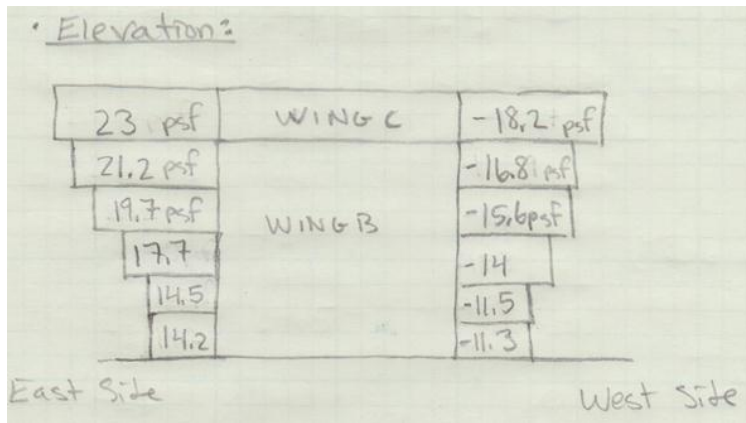 • Elevation:
23 psf WING C -18.2 psf
21.2 psf -16.8 psf
19.7 psf WING B -15.6 psf
17.7 -14
14.5 -11.5
14.2 -11.3
East Side West Side